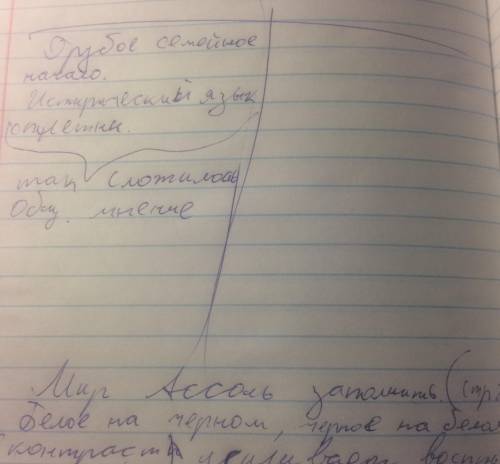 Грубое семейное
начало.
Исторический язык

так сложилось
Общ. мнение
Мир Ассоль заполнить (стр.
Белое на черном, черное на белом
контраст усиливает воспр